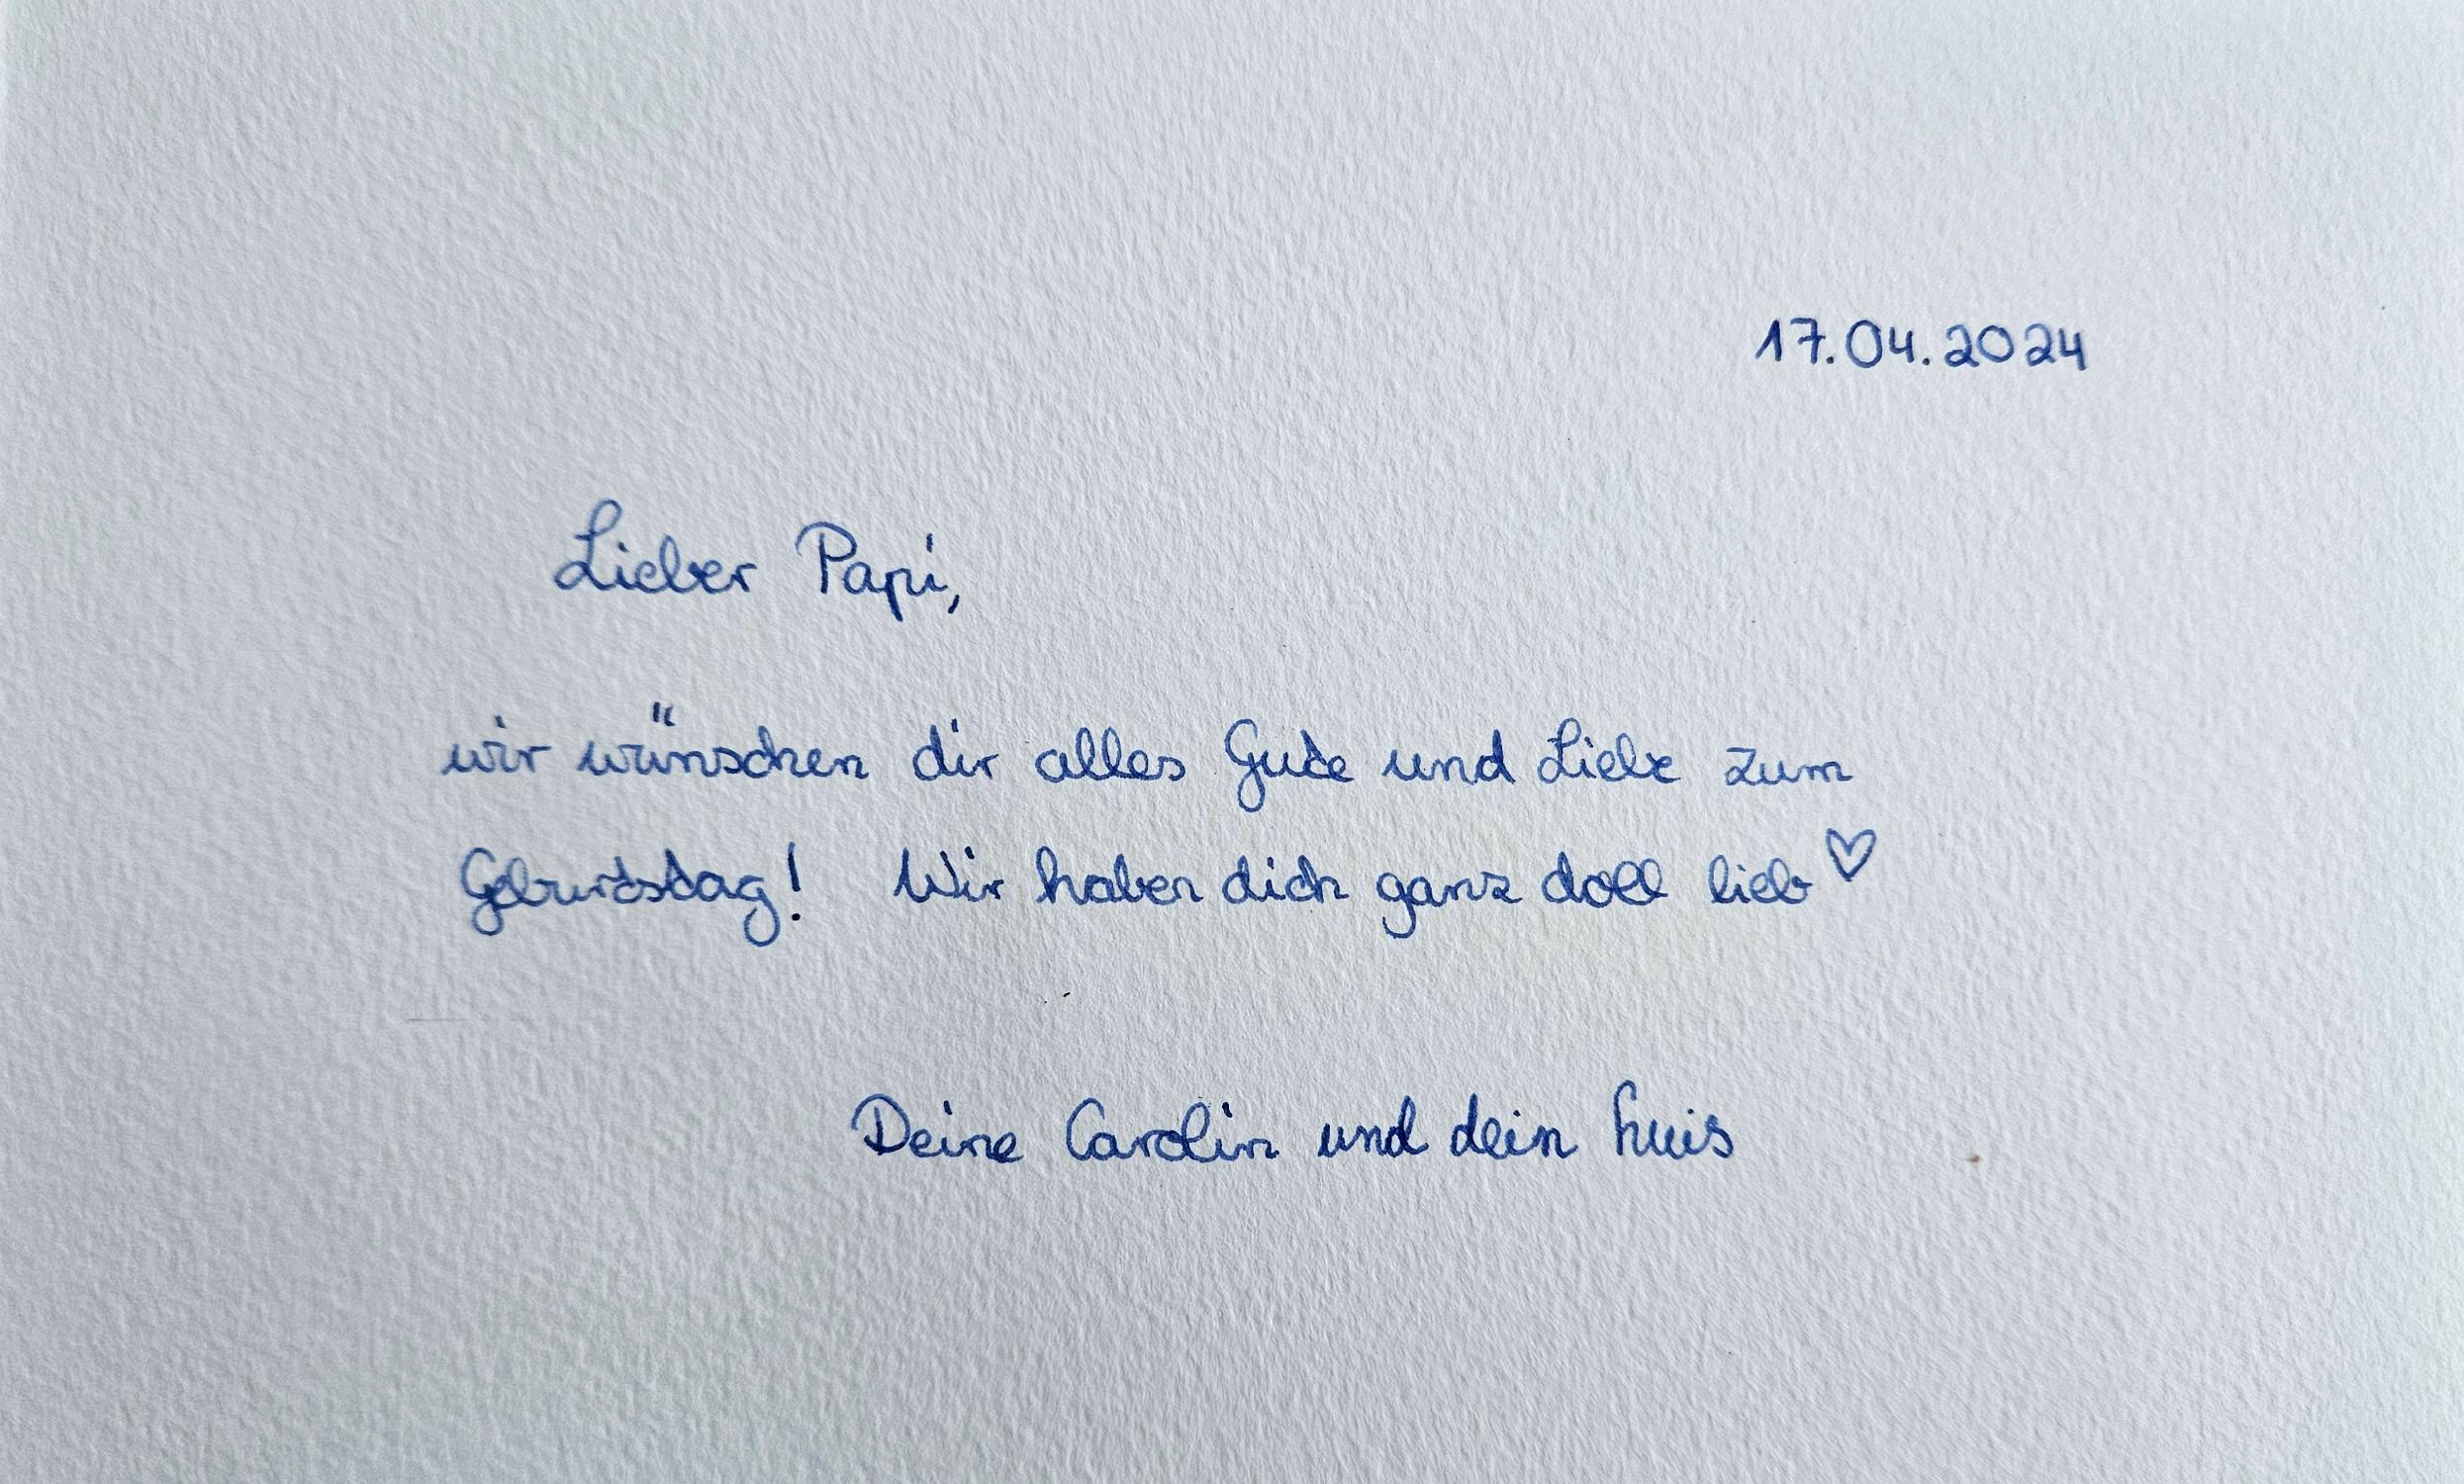 17.04.2024
Lieber Papi,
wir wünschen dir alles Gute und Liebe zum
Geburtstag! Wir haben dich ganz doll lieb ♡
Deine Carolin und dein